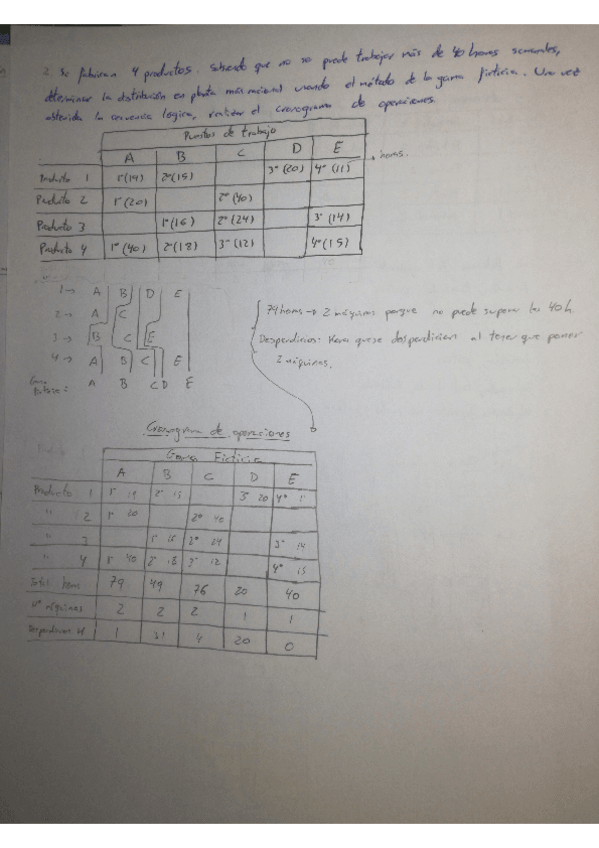 2. Se fabrican 4 productos. Sabiendo que no se puede trabajar más de 40 horas semanales,
determinar la distribución en planta más racional usando el método de la gama ficticia. Una vez
obtenida la secuencia lógica, realizar el cronograma de operaciones.
Puestos de trabajo
A B C D E
Producto 1 1º(19) 2º(15) 3º(20) 4º(11) horas.
Producto 2 1º(20) 2º(40)
Producto 3 1º(16) 2º(24) 3º(14)
Producto 4 1º(40) 2º(18) 3º(12) 4º(15)
1 → A B D E
2 → A C
3 → B C E
4 → A B C E
Gama ficticia: A B C D E
79 horas → 2 máquinas porque no puede superar las 40h.
Desperdicios: Horas que se desperdician al tener que poner
2 máquinas.
Cronograma de operaciones
Gama Ficticia
A B C D E
Producto 1 1º 19 2º 15 3º 20 4º 11
" 2 1º 20 2º 40
" 3 1º 16 2º 24 3º 14
" 4 1º 40 2º 18 3º 12 4º 15
Total horas 79 49 76 20 40
Nº máquinas 2 2 2 1 1
Desperdicios H 1 31 4 20 0